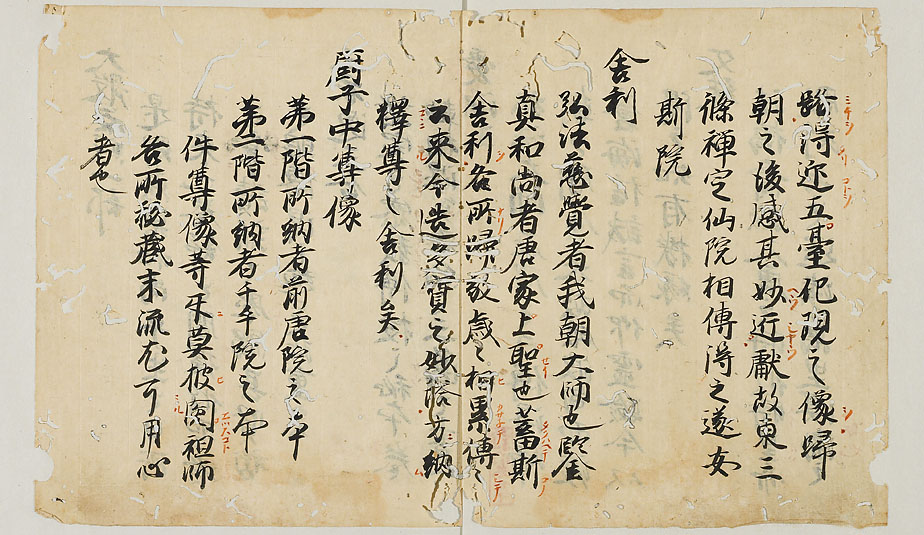 龄得近五臺化現之像歸
朝之後感其妙近獻故東三
條禅定仙院相傳得之遂安
斯院
舎利
弘法慈覺者我朝大師也鑒
真和尚者唐家上聖也蓄斯
舎利各所歸敬歳之相累傳之
云来今造多寶之妙塔方納
釋尊之舎利矣
厨子中尊像
第一階所納者前唐院之本
第二階所納者千手院之本
件尊像等更莫披閲祖師
各所秘蔵末流尤可用心
者也